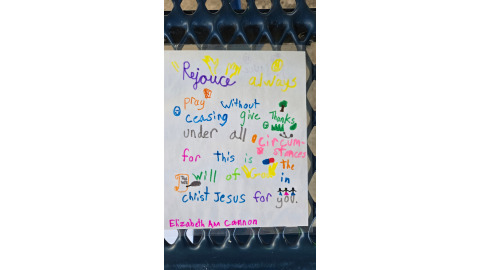 Rejouce always
pray without
ceasing give Thanks
under all circum-
stances
for this is the
will of in
christ Jesus for you.
Elizabeth Ann Cannon